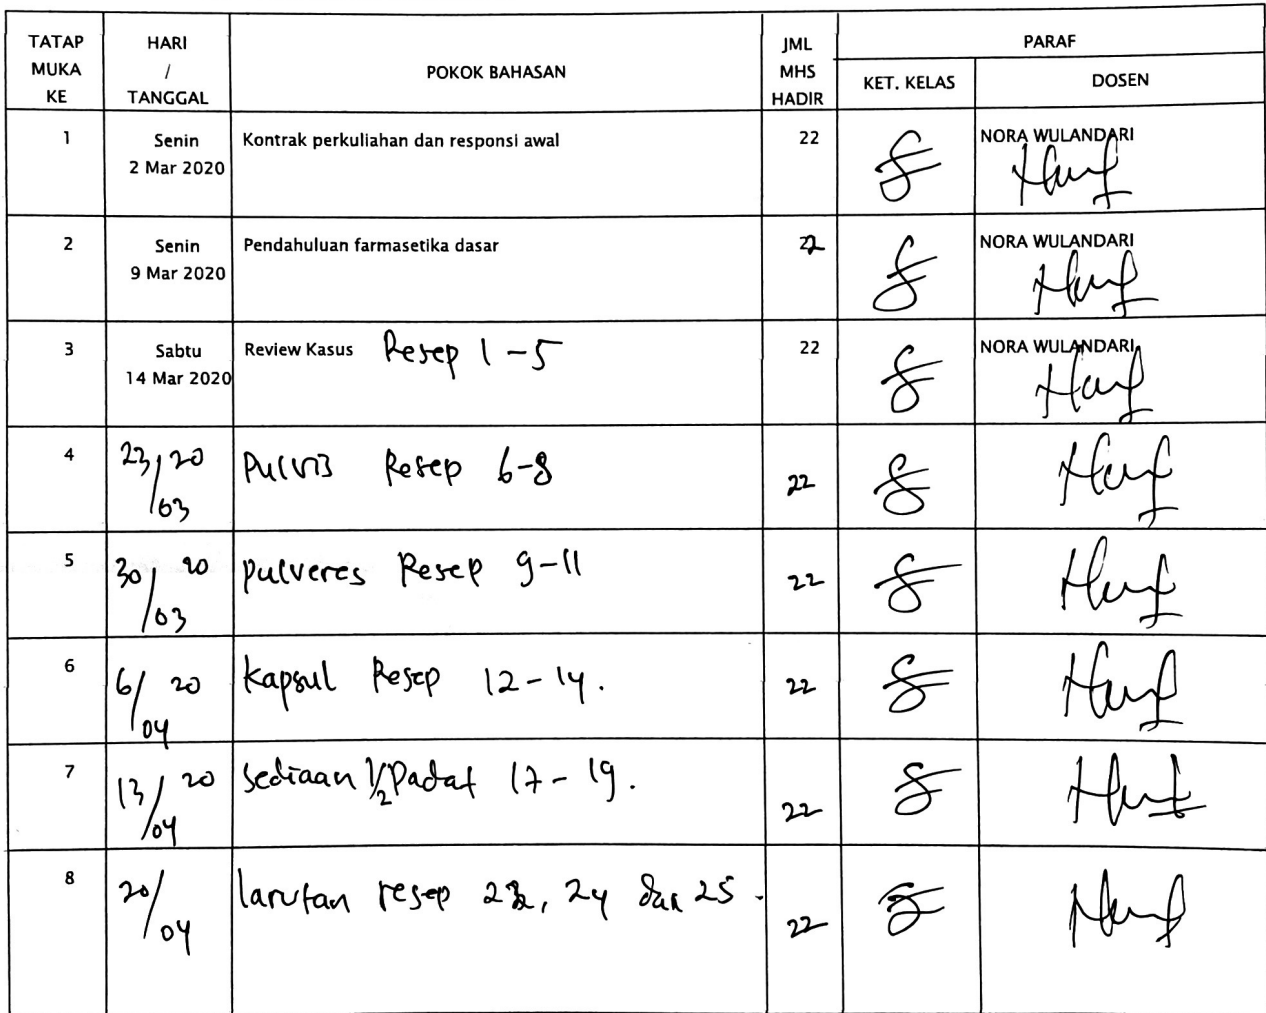 TATAP MUKA KE
HARI / TANGGAL
POKOK BAHASAN
JML MHS HADIR
PARAF
KET. KELAS
DOSEN
1
Senin 2 Mar 2020
Kontrak perkuliahan dan responsi awal
22
NORA WULANDARI
2
Senin 9 Mar 2020
Pendahuluan farmasetika dasar
22
NORA WULANDARI
3
Sabtu 14 Mar 2020
Review Kasus Resep 1-5
22
NORA WULANDARI
4
23/03 20
Pulvis Resep 6-8
22
5
30/03 20
Pulveres Resep 9-11
22
6
6/04 20
Kapsul Resep 12-14.
22
7
13/04 20
Sediaan 1/2 Padat 17-19.
22
8
20/04
larutan resep 24 dan 25.
22